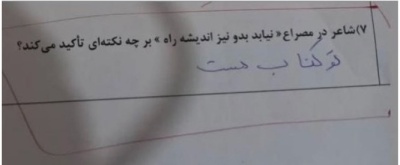 ۷)شاعر در مصراع« نیابد بدو نیز اندیشه راه » بر چه نکته‌ای تأکید می‌کند؟
در کتاب هست